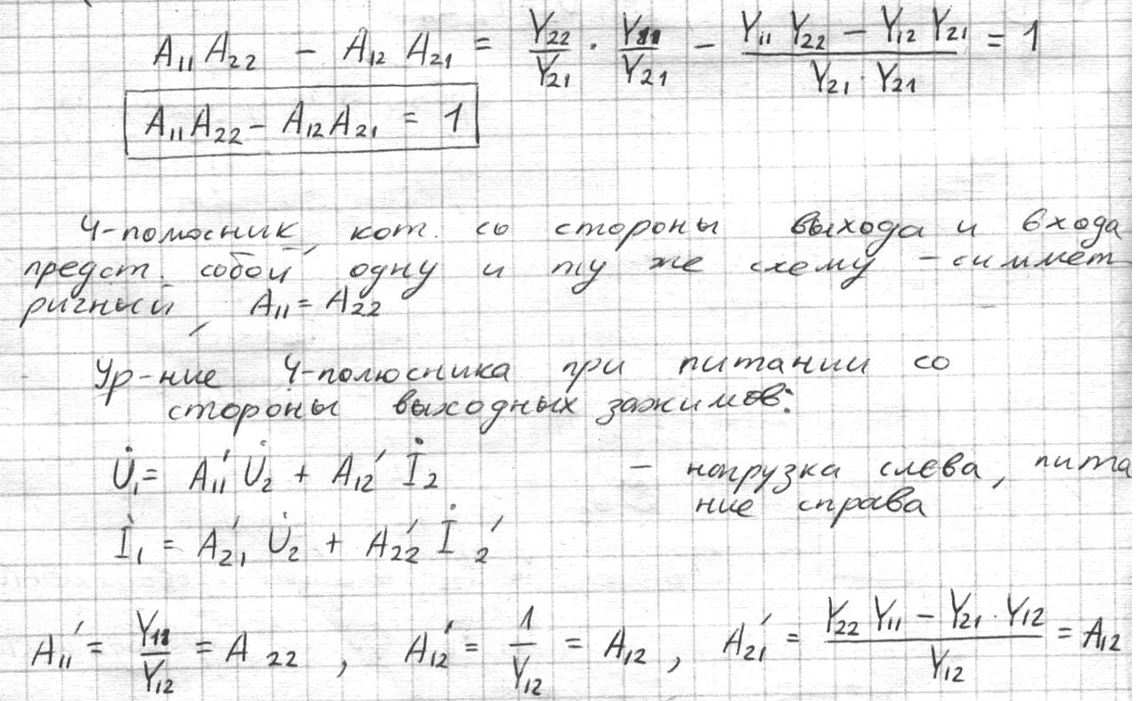 A₁₁A₂₂ − A₁₂ A₂₁ = Y₂₂/Y₂₁ · Y₁₁/Y₂₁ − (Y₁₁ Y₂₂ − Y₁₂ Y₂₁)/(Y₂₁ · Y₂₁) = 1
A₁₁A₂₂ − A₁₂A₂₁ = 1
4-полюсник, кот. со стороны выхода и входа
предст. собой одну и ту же схему – симмет
ричный, A₁₁ = A₂₂
Ур-ние 4-полюсника при питании со
стороны выходных зажимов:
U̇₁ = A₁₁′ U̇₂ + A₁₂′ İ₂ – нагрузка слева, пита
İ₁ = A₂₁′ U̇₂ + A₂₂′ İ₂′ ние справа
A₁₁′ = Y₁₁/Y₁₂ = A₂₂, A₁₂′ = 1/Y₁₂ = A₁₂, A₂₁′ = (Y₂₂ Y₁₁ − Y₂₁ · Y₁₂)/Y₁₂ = A₁₂